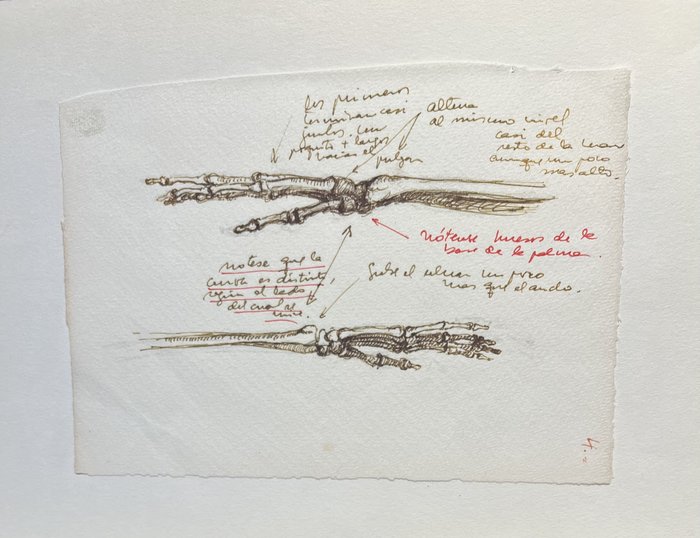 los primeros
terminan casi
juntos. un
poquito + largos
hacia el pulgar
altura
al mismo nivel
casi del
resto de la
aunque un poco
mas alto.
nótense huesos de la
base de la palma.
notese que la
curva es distinta
según el lado
del cual se
mire.
Sube el un poco
mas que el ancho.